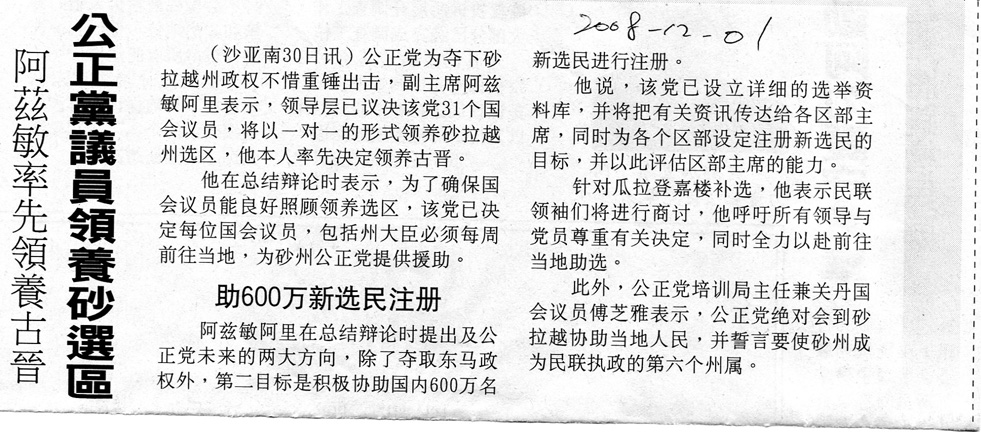 2008-12-01
公正黨議員領養砂選區
阿茲敏率先領養古晉
（沙亚南30日讯）公正党为夺下砂
拉越州政权不惜重锤出击，副主席阿兹
敏阿里表示，领导层已议决该党31个国
会议员，将以一对一的形式领养砂拉越
州选区，他本人率先决定领养古晋。
他在总结辩论时表示，为了确保国
会议员能良好照顾领养选区，该党已决
定每位国会议员，包括州大臣必须每周
前往当地，为砂州公正党提供援助。
助600万新选民注册
阿兹敏阿里在总结辩论时提出及公
正党未来的两大方向，除了夺取东马政
权外，第二目标是积极协助国内600万名
新选民进行注册。
他说，该党已设立详细的选举资
料库，并将把有关资讯传达给各区部主
席，同时为各个区部设定注册新选民的
目标，并以此评估区部主席的能力。
针对瓜拉登嘉楼补选，他表示民联
领袖们将进行商讨，他呼吁所有领导与
党员尊重有关决定，同时全力以赴前往
当地助选。
此外，公正党培训局主任兼关丹国
会议员傅芝雅表示，公正党绝对会到砂
拉越协助当地人民，并誓言要使砂州成
为民联执政的第六个州属。